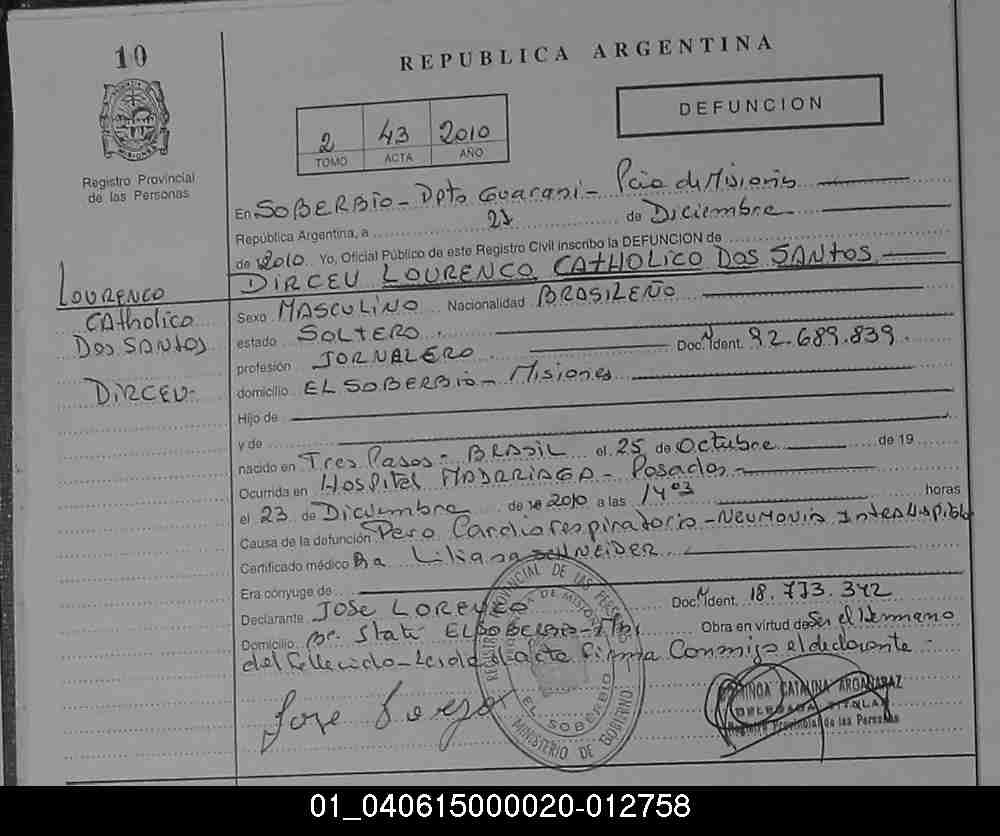 10
REPUBLICA ARGENTINA
2 43 2010
TOMO ACTA AÑO
DEFUNCION
MISIONES
Registro Provincial
de las Personas
En SOBERBIO - Dpto Guarani - Pcia de Misiones
República Argentina, a 27 de Diciembre
de 2010 Yo, Oficial Público de este Registro Civil inscribo la DEFUNCION de
DIRCEU LOURENCO CATHOLICO DOS SANTOS
LOURENCO
CAtholico
DOS SANTOS
DIRCEU-
Sexo MASCULINO Nacionalidad BRASILEÑO
estado SOLTERO.
profesión JORNALERO Doc. Ident. 92.689.839
domicilio EL SOBERBIO - Misiones
Hijo de
y de
nacido en Tres Pasos - BRASIL el 25 de Octubre de 19
Ocurrida en Hospital MADARIAGA - Posadas -
el 23 de Diciembre de 2010 a las 14 03 horas
Causa de la defunción Paro Cardiorespiratorio - NEUMONIA Intrahospital
Certificado médico Dra Liliana SCHNEIDER
Era cónyuge de
Declarante JOSE LORENZO Doc. Ident. 18.773.342
Domicilio EL SOBERBIO - Obra en virtud de Ser el Hermano
del fallecido - Leida el acta firma Conmigo el declarante -
REGISTRO PROVINCIAL DE LAS PERSONAS
EL SOBERBIO
MINISTERIO DE GOBIERNO
CATALINA
DELEGADA TITULAR
Registro Provincial de las Personas
01_040615000020-012758